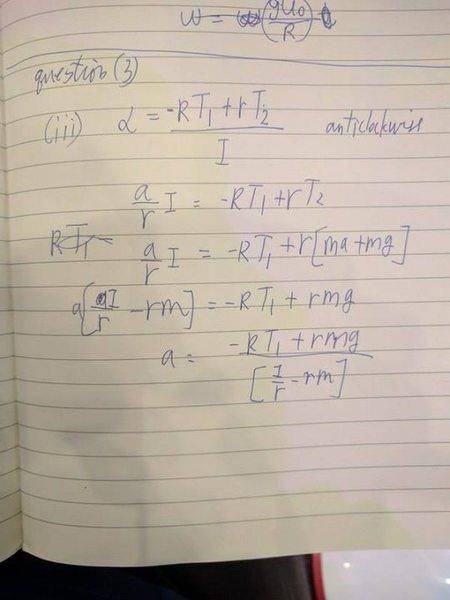 ω = (gu₀/R) t
question (3)
(iii) α = (-RT₁ + rT₂)/I anticlockwise
a/r I = -RT₁ + rT₂
RT₁ a/r I = -RT₁ + r[ma + mg]
a[I/r - rm] = -RT₁ + rmg
a = (-RT₁ + rmg)/[I/r - rm]